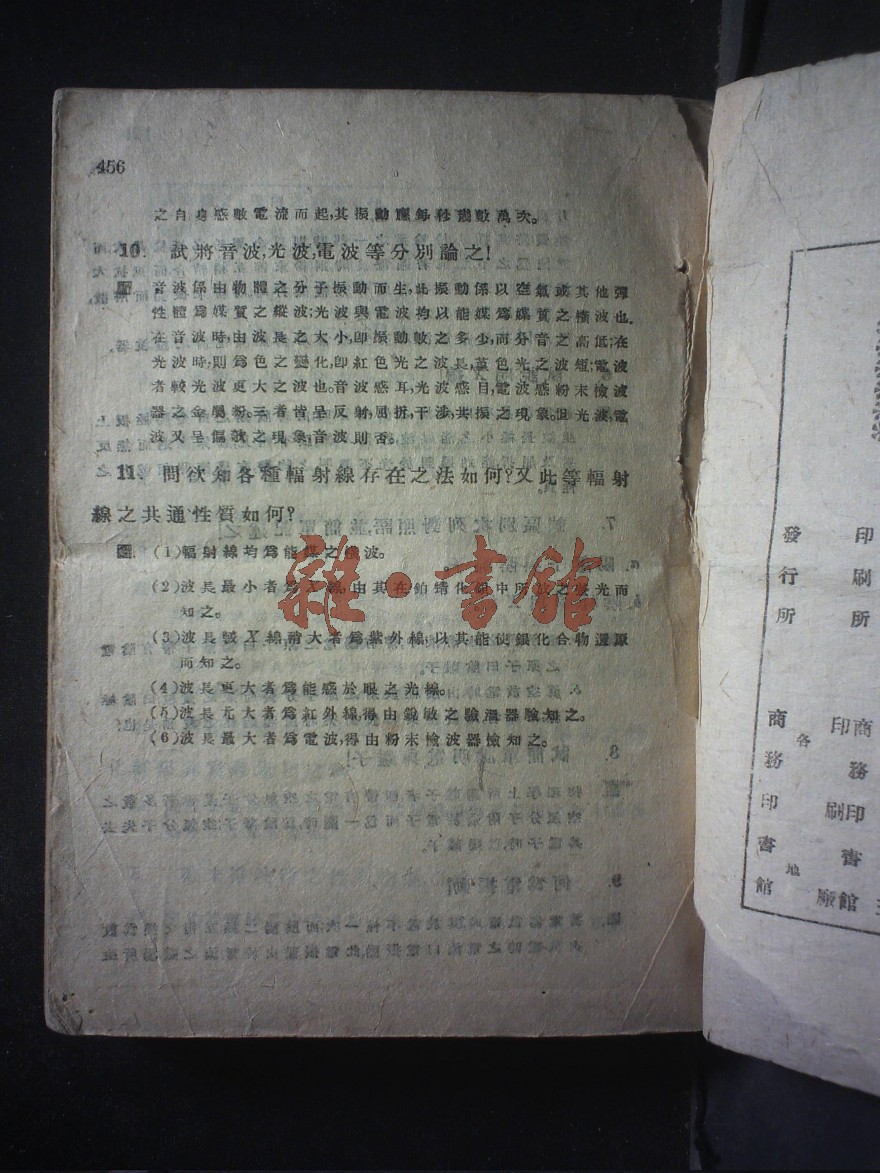 456
之自身感數電流而起,其振動應每秒幾數萬次。
10. 試將音波,光波,電波等分別論之!
音波係由物體之分子振動而生,此振動係以空氣或其他彈
性體爲媒質之縱波;光波與電波均以能媒爲媒質之橫波也.
在音波時,由波長之大小,卽振動數之多少,而分音之高低;在
光波時,則爲色之變化,卽紅色光之波長,菫色光之波短;電波
者較光波更大之波也。音波感耳,光波感目,電波感粉末檢波
器之金屬粉。三者皆呈反射,屈折,干涉,共振之現象。但光波,電
波又呈偏斂之現象,音波則否。
11. 問欲知各種輻射線存在之法如何?又此等輻射
線之共通性質如何?
(1)輻射線均爲能媒之橫波。
(2)波長最小者爲X線,由其在鉑
化鋇中所放之螢光而
知之。
(3)波長較X線稍大者爲紫外線,以其能使銀化合物還原
而知之。
(4)波長更大者爲能感於眼之光線。
(5)波長尤大者爲紅外線,得由銳敏之驗溫器驗知之。
(6)波長最大者爲電波,得由粉末檢波器檢知之。
雜·書館
印刷所
發行所
商務印書館
商務印書館
印刷廠
各地